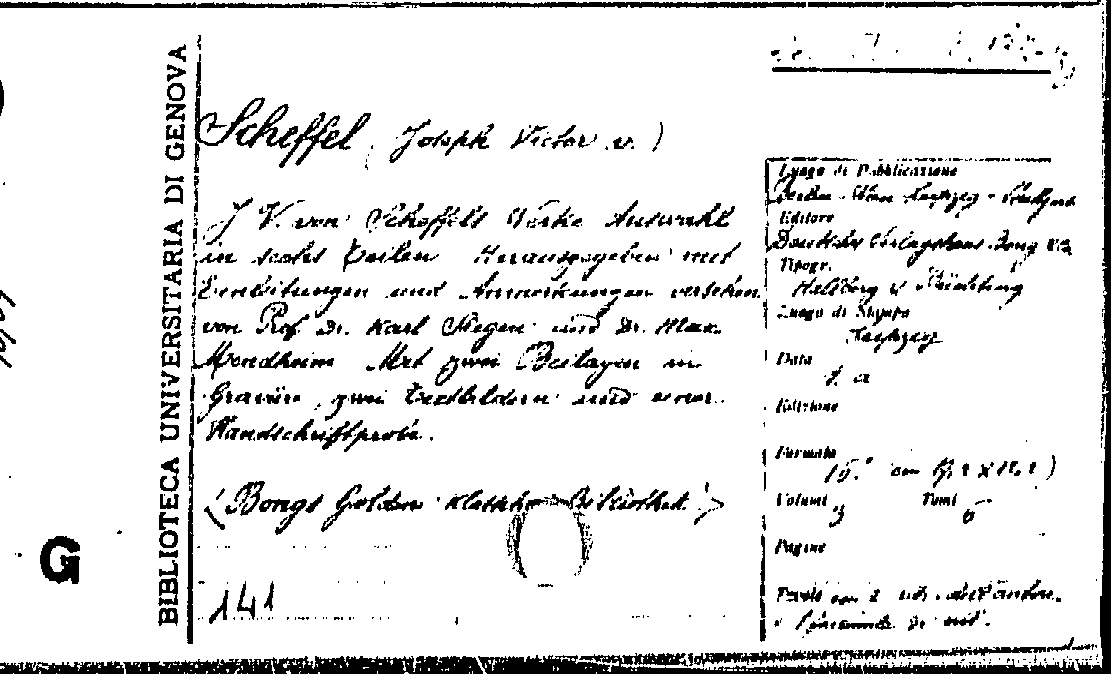 BIBLIOTECA UNIVERSITARIA DI GENOVA
G
Scheffel (Joseph Victor v.)
J. V. von Scheffels Werke Auswahl
in sechs Teilen Herausgegeben mit
Einleitungen und Anmerkungen versehen
von Prof. Dr. Karl Siegen und Dr. Max
Mendheim Mit zwei Beilagen in
Gravüre, zwei Textbildern und einer
Handschriftprobe.
(Bongs Goldene Klassiker Bibliothek)
141
Luogo di Pubblicazione
Berlin - Wien Leipzig - Stuttgart
Editore
Deutsches Verlagshaus Bong
Tipogr.
Luogo di Stampa
Leipzig
Data
s. a
Edizione
Formato
Volumi 3 Tomi 6
Pagine